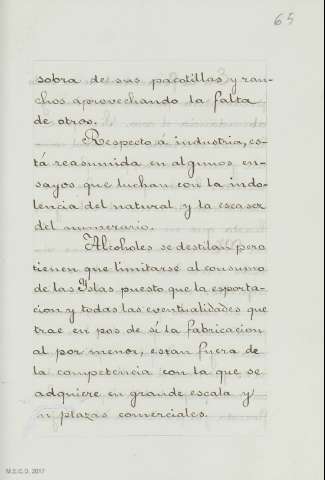 65
sobra de sus pacotillas y ran-
chos aprovechando la falta
de otros.
Respecto á industria, es-
tá reasumida en algunos en-
sayos que luchan con la indo-
lencia del natural y la escasez
del numerario.
Alcoholes se destilan pero
tienen que limitarse al consumo
de las Islas puesto que la esporta-
cion y todas las eventualidades que
trae en pos de sí la fabricacion
al por menor, estan fuera de
la competencia con la que se
adquiere en grande escala y
n plazas comerciales.
M.E.C.D. 2017